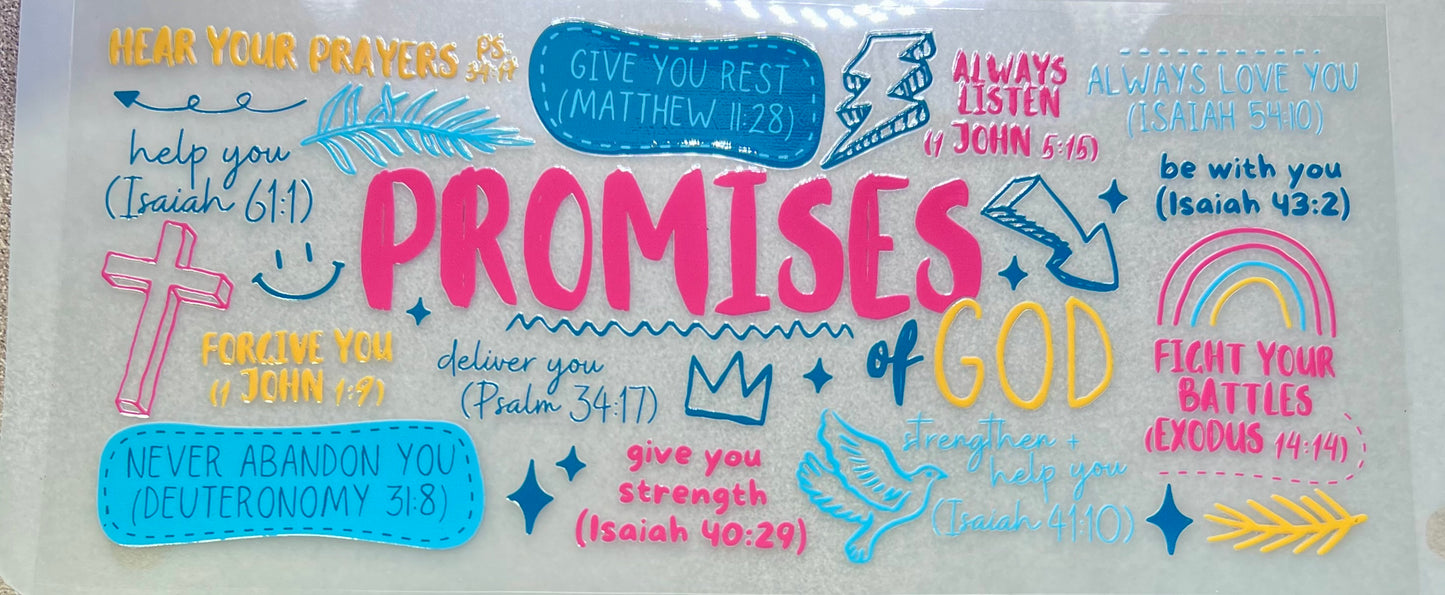 HEAR YOUR PRAYERS PS. 34:17
GIVE YOU REST
(MATTHEW 11:28)
ALWAYS
LISTEN
(1 JOHN 5:15)
ALWAYS LOVE YOU
(ISAIAH 54:10)
help you
(Isaiah 61:1)
be with you
(Isaiah 43:2)
PROMISES
of GOD
FORGIVE YOU
(1 JOHN 1:9)
deliver you
(Psalm 34:17)
FIGHT YOUR
BATTLES
(EXODUS 14:14)
NEVER ABANDON YOU
(DEUTERONOMY 31:8)
give you
strength
(Isaiah 40:29)
strengthen +
help you
(Isaiah 41:10)